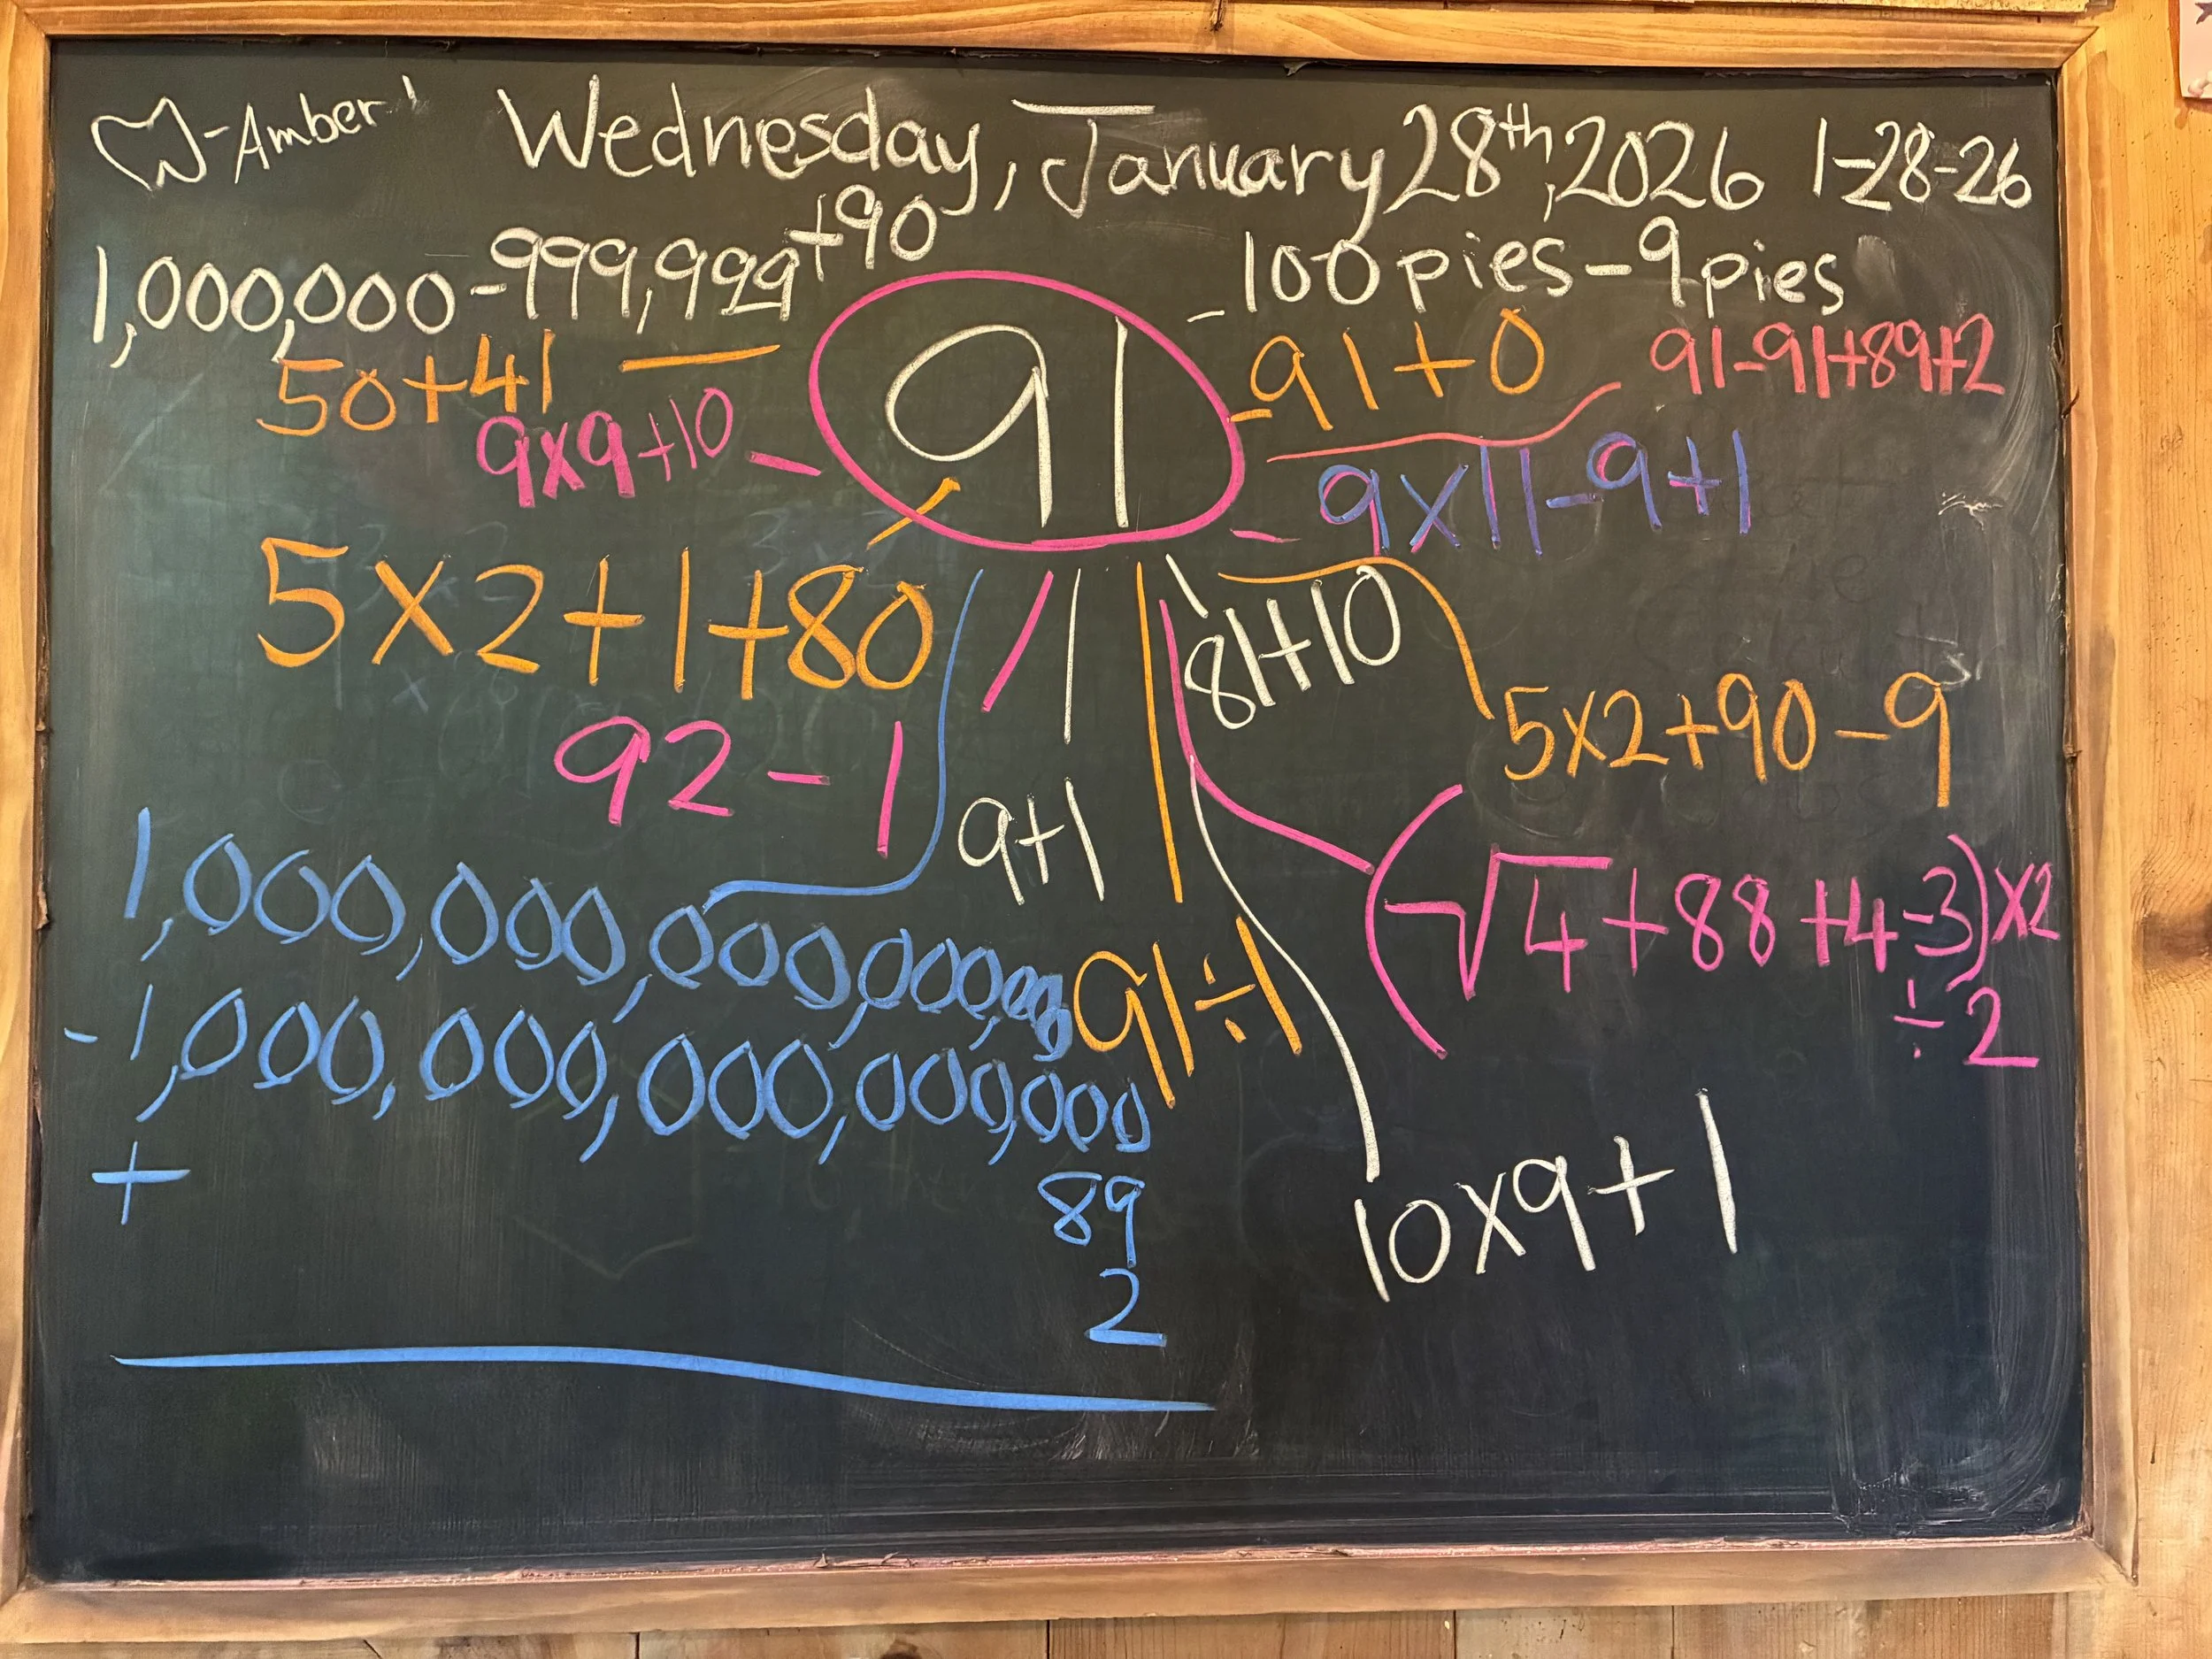 -Amber
Wednesday, January 28th, 2026 1-28-26
1,000,000-999,999+90
100 pies-9 pies
50+41
91
91+0
91-91+89+2
9x9+10
9x11-9+1
5x2+1+80
81+10
5x2+90-9
92-1
9+1
(√4+88+4-3)x2
÷2
1,000,000,000,000,000
91÷1
-1,000,000,000,000,000
+
89
2
10x9+1